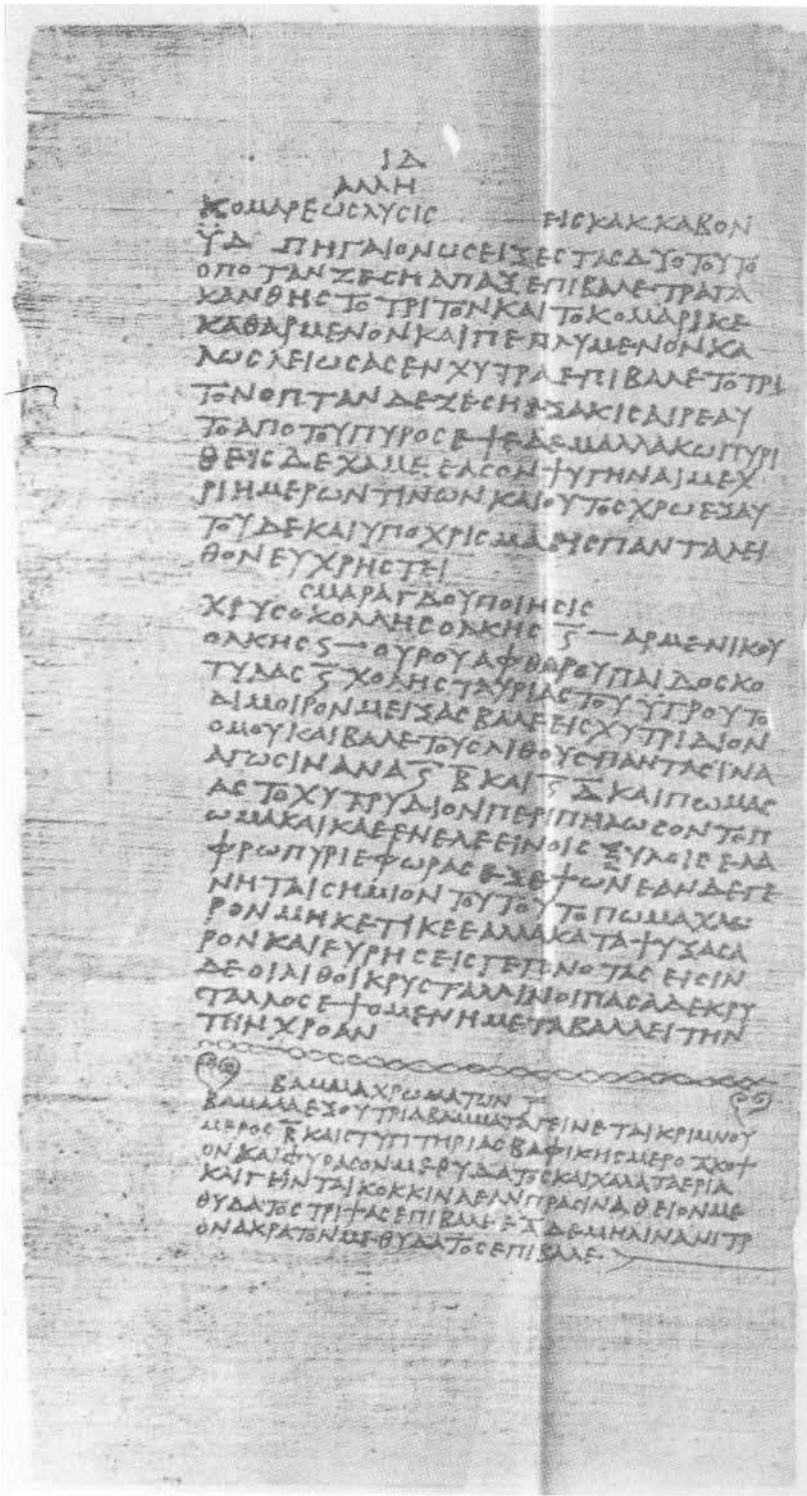 ΙΔ
ΑΛΛΗ
ΚΟΜΑΡΕΩΣ ΛΥΣΙΣ ΕΙΣ ΚΑΚΚΑΒΟΝ
ΫΔ ΠΗΓΑΙΟΝ ΩΣΕΙ ΞΕΣΤΑΣ ΔΥΟ ΤΟΥΤΟ
ΟΠΟΤΑΝ ΖΕΣΗ ΑΠΑΞ ΕΠΙΒΑΛΕ ΤΡΑΓΑ
ΚΑΝΘΗΣ ΤΟ ΤΡΙΤΟΝ ΚΑΙ ΤΟ ΚΟΜΑΡΙ ΚΕ
ΚΑΘΑΡΜΕΝΟΝ ΚΑΙ ΠΕΠΛΥΜΕΝΟΝ ΚΑ
ΛΩΣ ΛΕΙΩΣΑΣ ΕΝ ΧΥΤΡΑ ΕΠΙΒΑΛΕ ΤΟ ΤΡΙ
ΤΟΝ ΟΠΤΑΝ ΔΕ ΖΕΣΗ ΕΞΑΚΙΣ ΑΙΡΕ ΑΥ
ΤΟ ΑΠΟ ΤΟΥ ΠΥΡΟΣ ΕΨΕ ΔΕ ΜΑΛΛΑΚΩ ΠΥΡΙ
ΘΕΙΣ ΔΕ ΧΑΜΕ ΕΑΣΟΝ ΨΥΓΗΝΑΙ ΜΕΧ
ΡΙ ΗΜΕΡΩΝ ΤΙΝΩΝ ΚΑΙ ΟΥΤΟΣ ΧΡΩ ΕΞ ΑΥ
ΤΟΥ ΔΕ ΚΑΙ ΥΠΟΧΡΙΣΜΑ ΕΙΣ ΠΑΝΤΑ ΛΕΙ
ΘΟΝ ΕΥΧΡΗΣΤΕΙ
ΣΜΑΡΑΓΔΟΥ ΠΟΙΗΣΙΣ
ΧΡΥΣΟΚΟΛΛΗΣ ΟΛΚΗΣ Ϛ — ΑΡΜΕΝΙΚΟΥ
ΟΛΚΗΣ Ϛ — ΟΥΡΟΥ ΑΦΘΑΡΟΥ ΠΑΙΔΟΣ ΚΟ
ΤΥΛΑΣ Ϛ ΧΟΛΗΣ ΤΑΥΡΙΑΣ ΤΟΥ ΥΓΡΟΥ ΤΟ
ΔΙΜΟΙΡΟΝ ΜΕΙΞΑΣ ΒΑΛΕ ΕΙΣ ΧΥΤΡΙΔΙΟΝ
ΟΜΟΥ ΚΑΙ ΒΑΛΕ ΤΟΥΣ ΛΙΘΟΥΣ ΠΑΝΤΑΣ ΙΝΑ
ΑΓΩΣΙΝ ΑΝΑ Ϛ Β ΚΑΙ Ϛ Δ ΚΑΙ ΠΩΜΑΣ
ΑΣ ΤΟ ΧΥΤΡΥΔΙΟΝ ΠΕΡΙΠΗΛΩΣΟΝ ΤΟ Π
ΩΜΑ ΚΑΙ ΚΑΕ ΕΝ ΕΛΕΕΙΝΟΙΣ ΞΥΛΟΙΣ ΕΛΑ
ΦΡΩ ΠΥΡΙ ΕΦ ΩΡΑΣ ΕΞ ΕΨΩΝ ΕΑΝ ΔΕ ΓΕ
ΝΗΤΑΙ ΣΗΜΙΟΝ ΤΟΥΤΟ ΥΤΟ ΠΩΜΑ ΧΛΩ
ΡΟΝ ΜΗΚΕΤΙ ΚΕΕ ΑΛΛΑ ΚΑΤΑΨΥΞΑΣ Α
ΡΟΝ ΚΑΙ ΕΥΡΗΣΕΙΣ ΓΕΓΟΝΟΤΑΣ ΕΙΣΙΝ
ΔΕ ΟΙ ΛΙΘΟΙ ΚΡΥΣΤΑΛΛΙΝΟΙ ΠΑΣΑ ΔΕ ΚΡΥ
ΣΤΑΛΛΟΣ ΕΨΟΜΕΝΗ ΜΕΤΑΒΑΛΛΕΙ ΤΗΝ
ΤΗΝ ΧΡΟΑΝ
ΒΑΜΜΑ ΧΡΩΜΑΤΩΝ Γ
ΒΑΜΜΑ ΕΞ ΟΥ ΤΡΙΑ ΒΑΜΜΑΤΑ ΓΕΙΝΕΤΑΙ ΚΡΙΜΝΟΥ
ΜΕΡΟΣ Β ΚΑΙ ΣΤΥΠΤΗΡΙΑΣ ΒΑΦΙΚΗΣ ΜΕΡΟΣ Α ΚΟΨ
ΟΝ ΚΑΙ ΦΥΡΑΣΟΝ ΜΕΘ ΥΔΑΤΟΣ ΚΑΙ ΧΑΛΑ ΤΑ ΕΡΙΑ
ΚΑΙ ΓΕΙΝΤΑΙ ΚΟΚΚΙΝΑ ΕΑΝ ΠΡΑΣΙΝΑ ΘΕΙΟΝ ΜΕ
Θ ΥΔΑΤΟΣ ΤΡΙΨΑΣ ΕΠΙΒΑΛΕ ΕΞ ΔΕ ΜΗΛΙΝΑ ΝΙΤΡ
ΟΝ ΑΚΡΑΤΟΝ ΜΕΘ ΥΔΑΤΟΣ ΕΠΙΒΑΛΕ